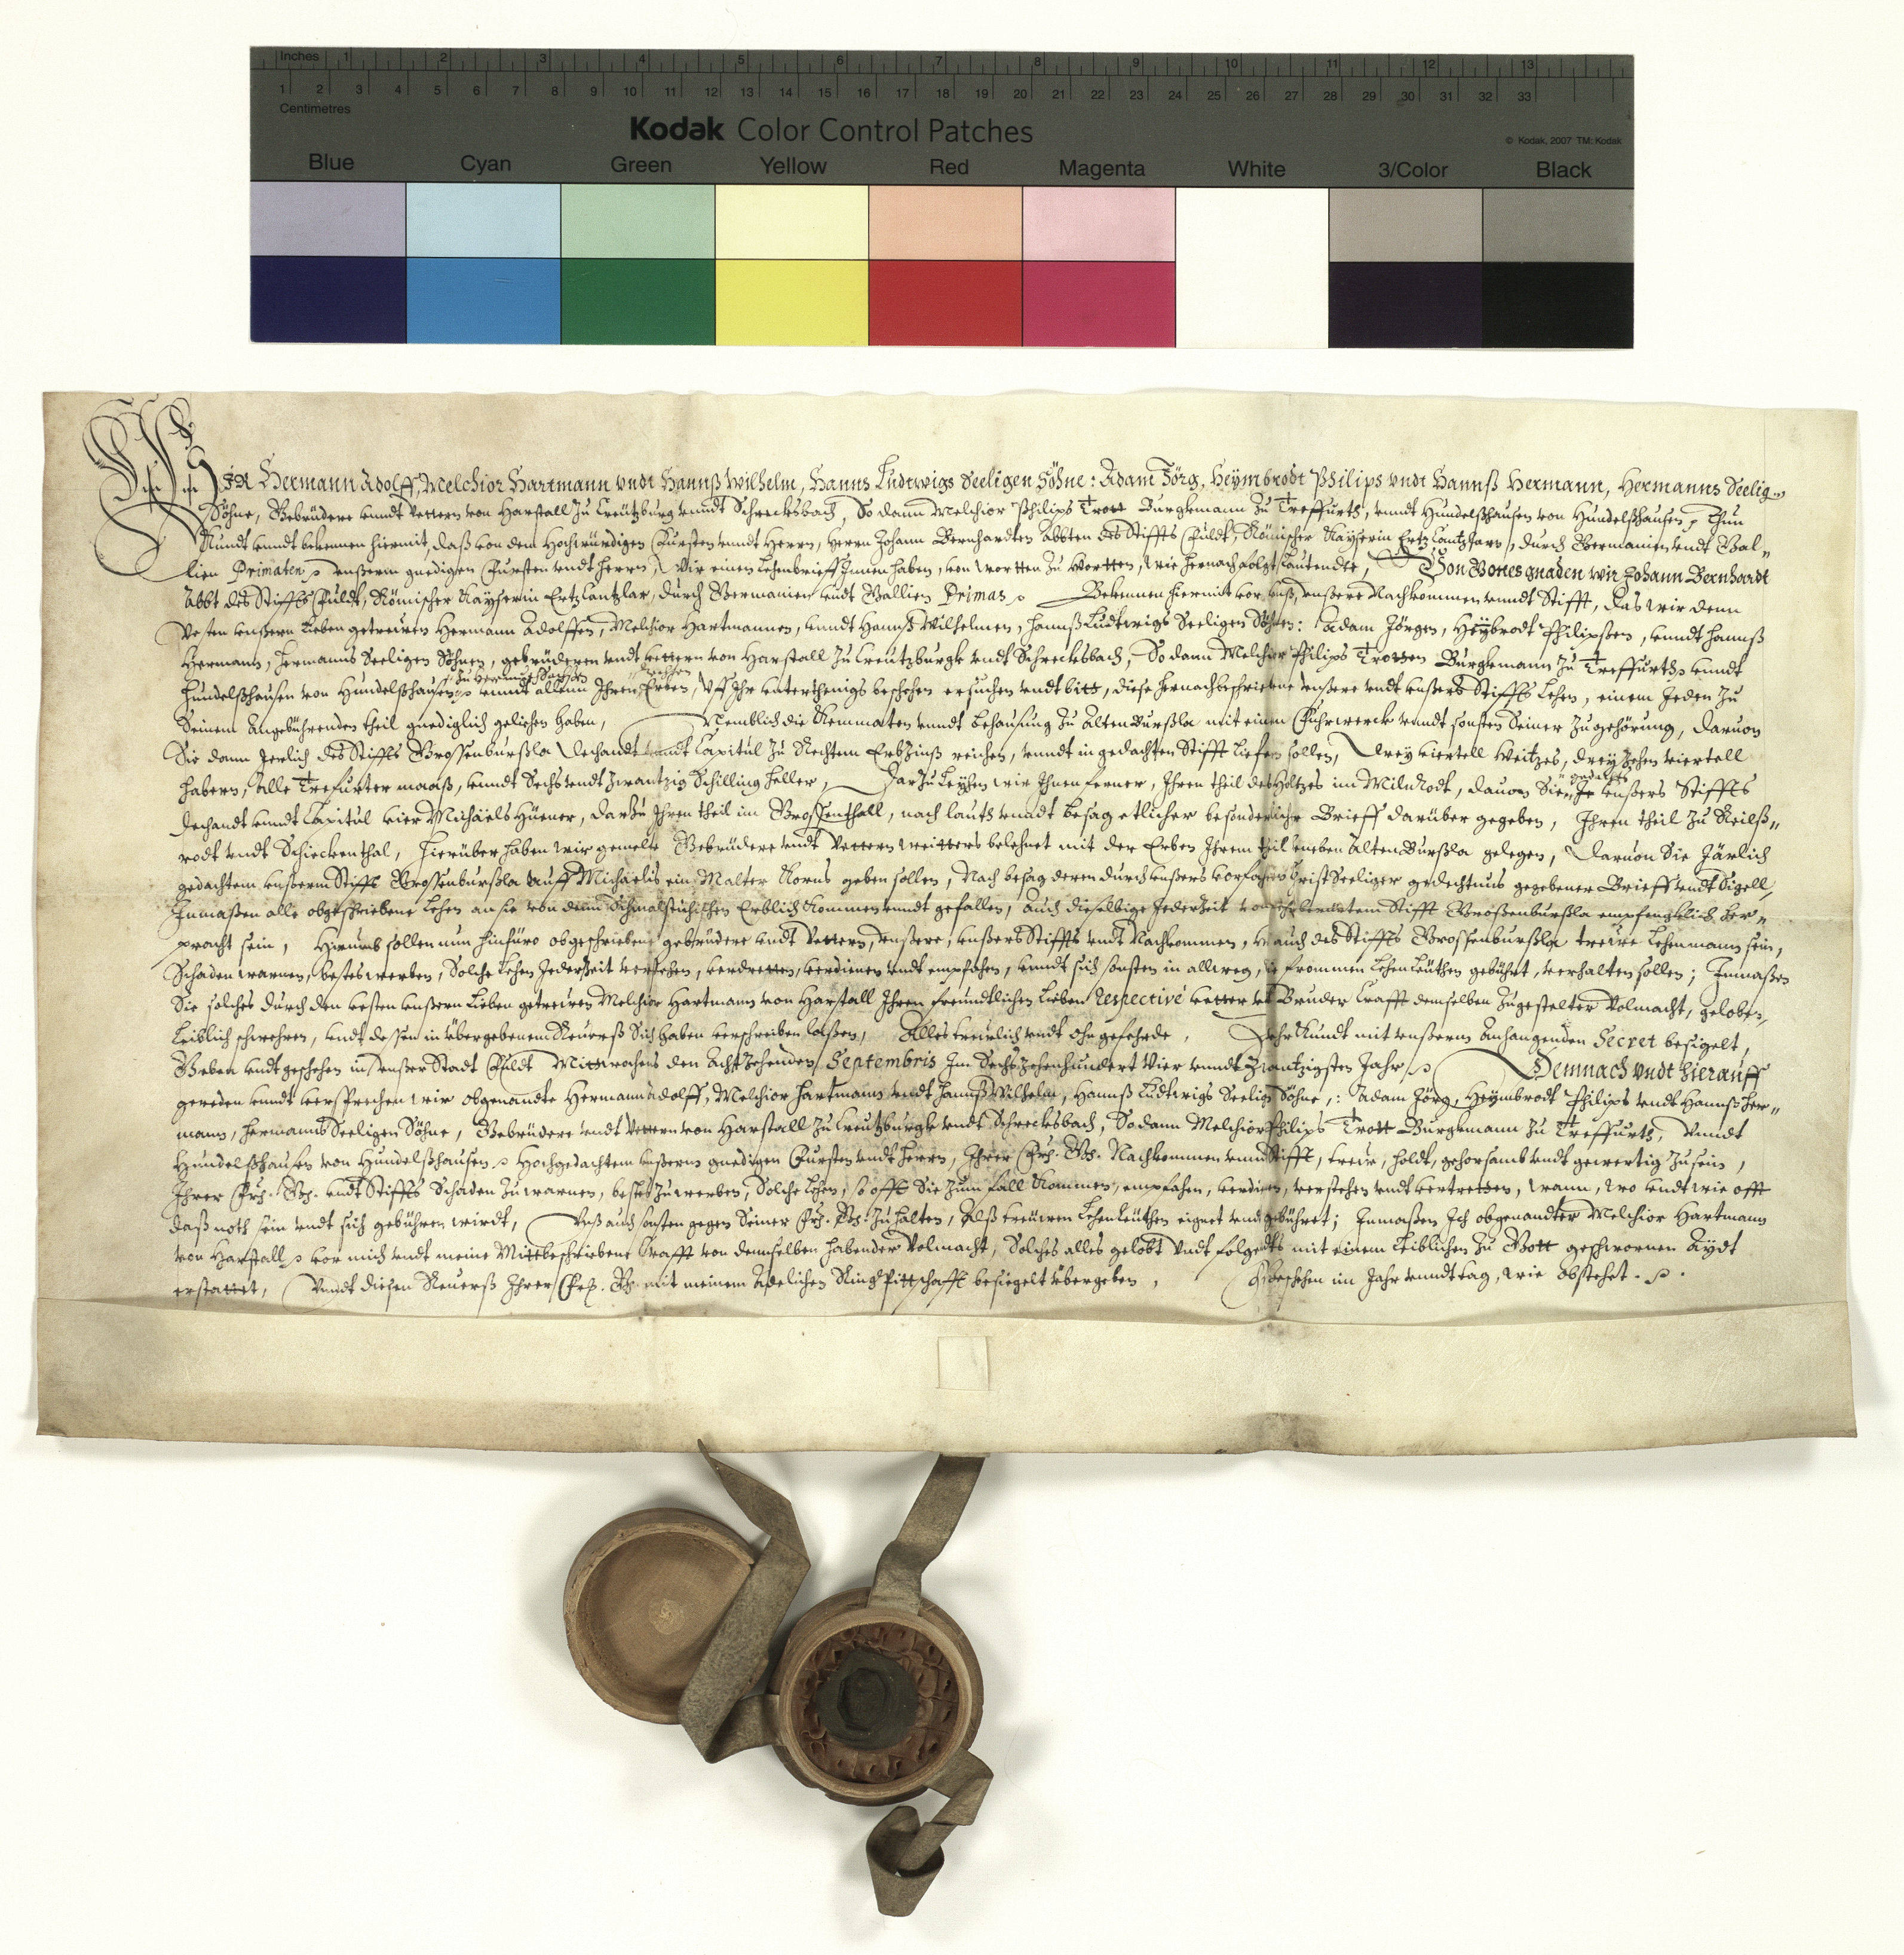 Inches 1 2 3 4 5 6 7 8 9 10 11 12 13
1 2 3 4 5 6 7 8 9 10 11 12 13 14 15 16 17 18 19 20 21 22 23 24 25 26 27 28 29 30 31 32 33
Centimetres
Kodak Color Control Patches
© Kodak, 2007 TM: Kodak
Blue Cyan Green Yellow Red Magenta White 3/Color Black
WIR Hermann Adolff, Melchior Hartmann vndt Hannß Wilhelm, Hanns Ludtwigs Seeligen Söhne: Adam Jörg, Heymbrodt Philips vndt Hannß Hermann, Hermanns Seelig„
Söhne, Gebrüdere vnndt Vettern von Harstall zu Creützburg vnndt Schrecksbach, So dann Melchior Philips Trott Burgkmann zu Treffurth, vnndt Hundelßhausen von Hundelßhausen, Thun
Kundt vnndt bekennen hiermit, daß von dem Hochwürdigen Fürsten vnndt Herrn, Herrn Johann Bernhardten Abbten des Stiffts Fuldt, Römischer Kayserin Ertzcantzlarn, durch Germanien vndt Gal„
lien Primaten, vnßerm gnedigen Fursten vndt Herren, Wir einen Lehenbrieff Innen haben, von wortten zu wortten, wie hernach folgt Lautendte, Von Gottes gnaden wir Johann Bernhardt
Abbt des Stiffts Fuldt, Römischer Kayserin Ertzcantzlar, durch Germanien vndt Gallien Primas, Bekennen hiermit vor vnß, vnßere Nachkommen vnndt Stifft, das wir denn
Vesten vnßern Lieben getreüwen Hermann Adolffen, Melchior Hartmannen, vnndt Hannß Wilhelmen, Hannß Ludtwigs Seeligen Söhnen: Adam Jörgen, Heybrodt Philipßen, vnndt Hannß
Hermann, Hermanns Seeligen Söhnen, gebrüderen vndt Vettern von Harstall zu Creutzburgk vndt Schrecksbach, So dann Melchior Philips Trotten Burgkmann zu Treffurth, vnndt
Hundelßhausen von Hundelßhausen, vnndt allenn Ihren Erben, Vff Ihr vnterthenigs beschehen ersuchen vndt bitt, diese hernachbeschriebene vnßere vndt vnßers Stiffts Lehen, einem Jeden zu
Seinem Angebührenden theil gnediglich geliehen haben, Nemblich die Kemmaten vnndt behausung zu AltenBurßla mit einem Fuhrwerck vnndt sonsten Seiner zugehörung, daruon
Sie dann Jerlich des Stiffts Grossenburßla Dechandt vnndt Capitul zu Rechtem Erbzinß reichen, vnndt in gedachten Stifft liefern sollen, Drey viertell Weitzes, dreyzehen viertell
Habern, Alle Trefurter maaß, vnndt Sechs vndt zwantzig Schilling Heller, Darzu Leyhen wir Ihnen ferner, Ihren theil des Holtzes im Milnrodt, dauon Sie vnßers Stiffts
Dechandt vnndt Capitul vier Michaels Hüener, Darzu Ihren theil im Grossenthall, nach lauts vnndt besag etlicher besonderlicher Brieff darüber gegeben, Ihren theil zu Reilß„
rodt vndt Schieckenthal, Hierüber haben wir gemelte Gebrüdere vndt Vettern weitters belehnet mit der Erben Ihrem theil neben AltenBurßla gelegen, Daruon Sie Järlich
gedachtem vnßerm Stifft Grossenburßla vff Michaelis ein Malter Korns geben sollen, Nach besag deren durch vnßers vorfahren Christseeliger gedechtnus gegebener Brieff vndt Sigell,
Inmaßen alle obgeschriebene Lehen an sie von denn Erblich kommen vnndt gefallen, auch dieselbige Jederzeit von ehrberürtem Stifft Großenburßla empfengklich her„
pracht sein, Hirumb sollen nun hinfüro obgeschriebene gebrüdere vndt Vettern, vnßere, vnßers Stiffts vndt Nachkommen, auch des Stiffts Grossenburßla treüwe Lehenmann sein,
Schaden warnen, bestes werben, Solche Lehen Jederzeit versehen, verdretten, verdienen vndt empfahen, vnndt sich sonsten in allweg, frommen Lehenleüthen gebührt, verhalten sollen; Inmaßen
Sie solches durch den vesten vnßern Lieben getreüwen Melchior Hartmann von Harstall Ihren freundtlichen Lieben Respectivè vetter vndt Bruder Crafft demselben zugestelter Volmacht, geloben,
Leiblich schwehren, vndt dessen in übergebenem Reuerß Sich haben verschreiben laßen, Alles treüwlich vndt ohn gefehrde, Zu vhrkundt mit vnßerm anhangenden Secret besigelt,
Geben vndt geschehen in vnßer Stadt Fuldt Mittwochens den Achtzehenden Septembris Im Sechszehenhundert Vier vnndt zwantzigsten Jahr, Demnach vndt hierauff
gereden vnndt versprechen wir obgenandte Hermann Adolff, Melchior Hartmann vndt Hannß Wilhelm, Hannß Ludtwigs Seelig Söhne,: Adam Jörg, Heymbrodt Philips vndt Hannß Her„
mann, Hermanns Seeligen Söhne, Gebrüdere vndt Vettern von Harstall zu Creutzburgk vndt Schrecksbach, So dann Melchior Philips Trott Burgkmann zu Treffurth, vnndt
Hundelßhausen von Hundelßhausen, Hochgedachtem vnßerm gnedigen Fursten vndt Herrn, Ihrer Frh. Gh. Nachkommen vnnd Stifft, treüw, holdt, gehorsamb vndt gewertig zu sein,
Ihrer Frh. Gh. vndt Stiffts Schaden zu warnen, bestes zu werben, Solche Lehen, so offt Sie zum fall kommen, empfahen, verdienen, verstehen vndt vertretten, wann, wo vndt wie offt
daß noth sein vndt sich gebühren wirdt, Vnß auch sonsten gegen Seiner Frh. Gh. zu halten, Alß treüwen Lehenleüthen eignet vndt gebühret; Inmaßen Ich obgenandter Melchior Hartmann
von Harstall, vor mich vndt meine Mittbeschriebene Crafft von demselben habender Volmacht, Solches alles gelobt vndt folgendts mit einem Leiblichen zu Gott geschwornen Aydt
erstattet, Vnndt diesen Reuerß Ihrer Frh. Gh. mit meinem Adelichen Ring Pittschafft besiegelt übergeben, Geschehen im Jahr vnndt tag, wie obstehet.